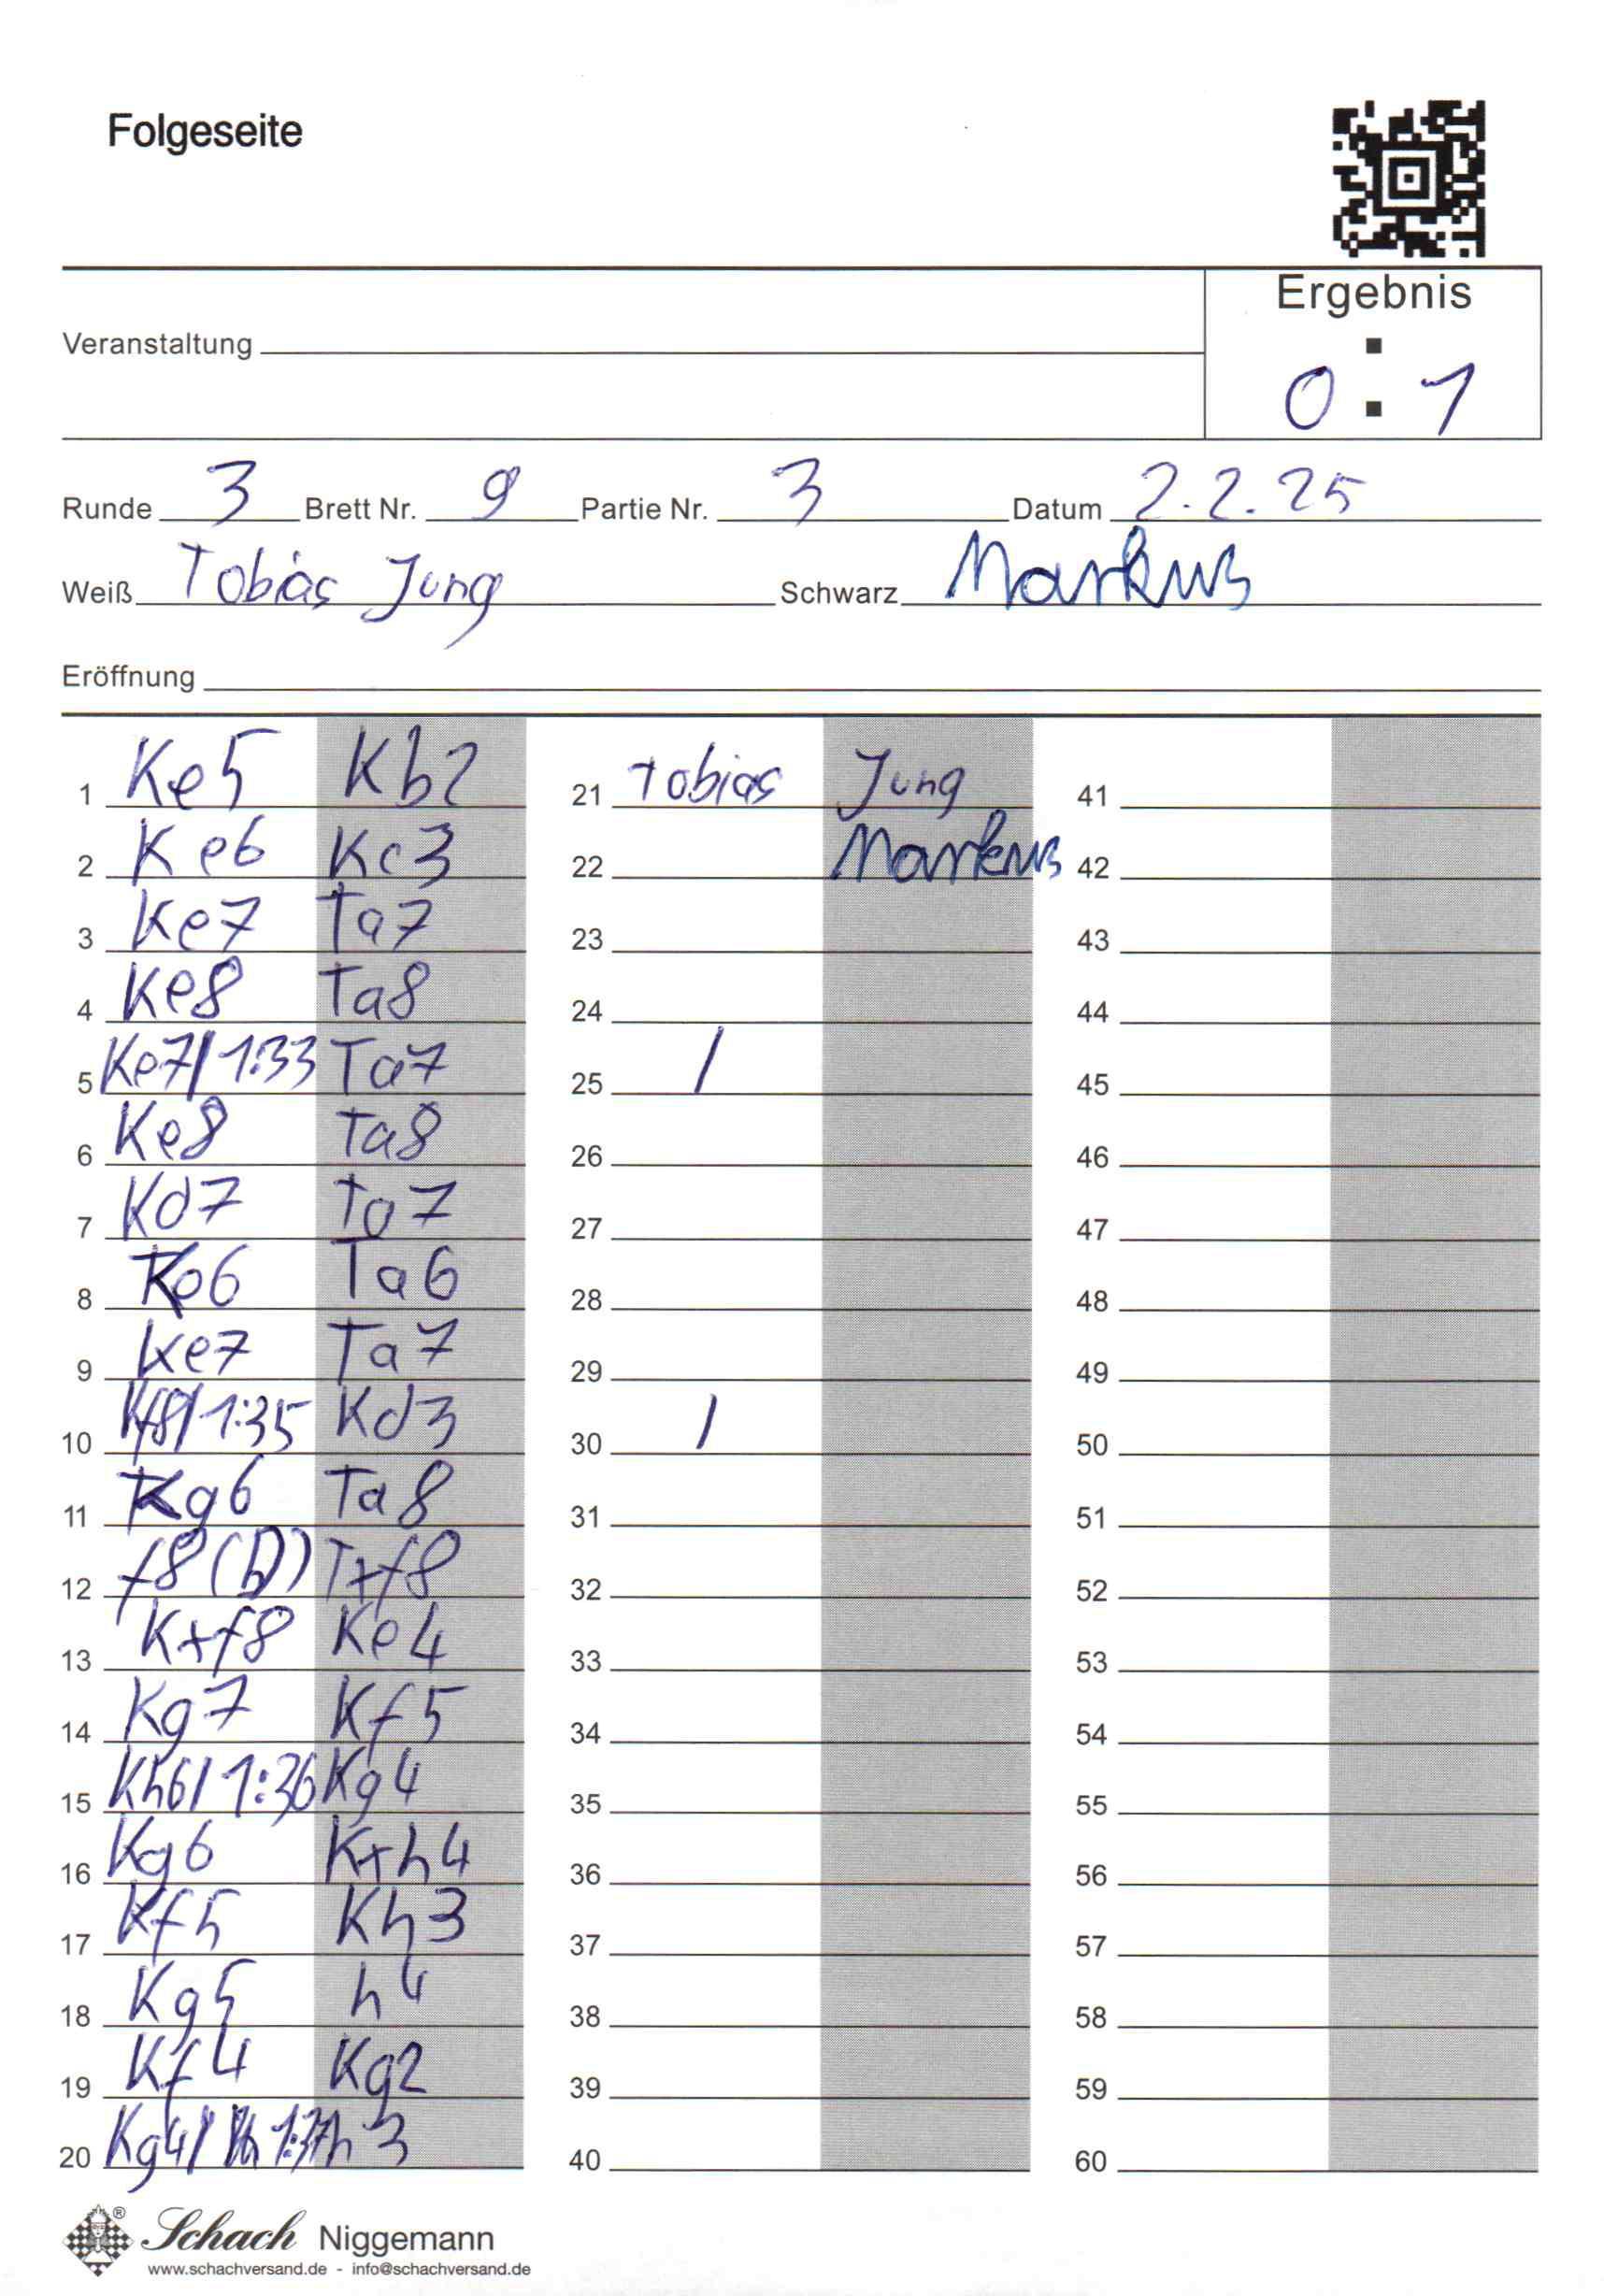 Folgeseite
Ergebnis
Veranstaltung
0 : 1
Runde 3 Brett Nr. 9 Partie Nr. 3 Datum 2.2.25
Weiß Tobias Jung Schwarz Markus
Eröffnung
1 Ke5 Kb2
2 Ke6 Kc3
3 Ke7 Ta7
4 Ke8 Ta8
5 Ke7/1:33 Ta7
6 Ke8 Ta8
7 Kd7 Ta7
8 Ke6 Ta6
9 Ke7 Ta7
10 Kf8/1:35 Kd3
11 Kg6 Ta8
12 f8(D) Txf8
13 Kxf8 Ke4
14 Kg7 Kf5
15 Kh6/1:36 Kg4
16 Kg6 Kxh4
17 Kf5 Kh3
18 Kg5 h4
19 Kf4 Kg2
20 Kg4/ 1:37 h3
21 Tobias Jung
22 Markus
23
24
25 /
26
27
28
29
30 /
31
32
33
34
35
36
37
38
39
40
41
42
43
44
45
46
47
48
49
50
51
52
53
54
55
56
57
58
59
60
Schach Niggemann
www.schachversand.de - info@schachversand.de